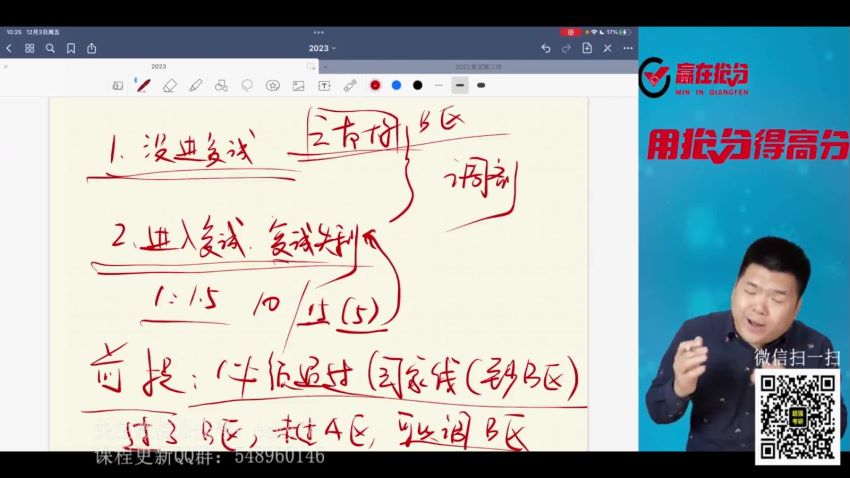 10:25 12月3日周五
17%
2023
2023
2022复试第二讲
赢在抢分
WIN IN QIANGFEN
用抢分得高分
1. 没进复试
B区
调剂
2. 进入复试. 复试失利
1:1.5 10/15 (5)
前提: 必须过 国家线(至少B区)
过了B区, 未过A区, 可以调B区
微信扫一扫
超强考研
课程更新QQ群：548960146